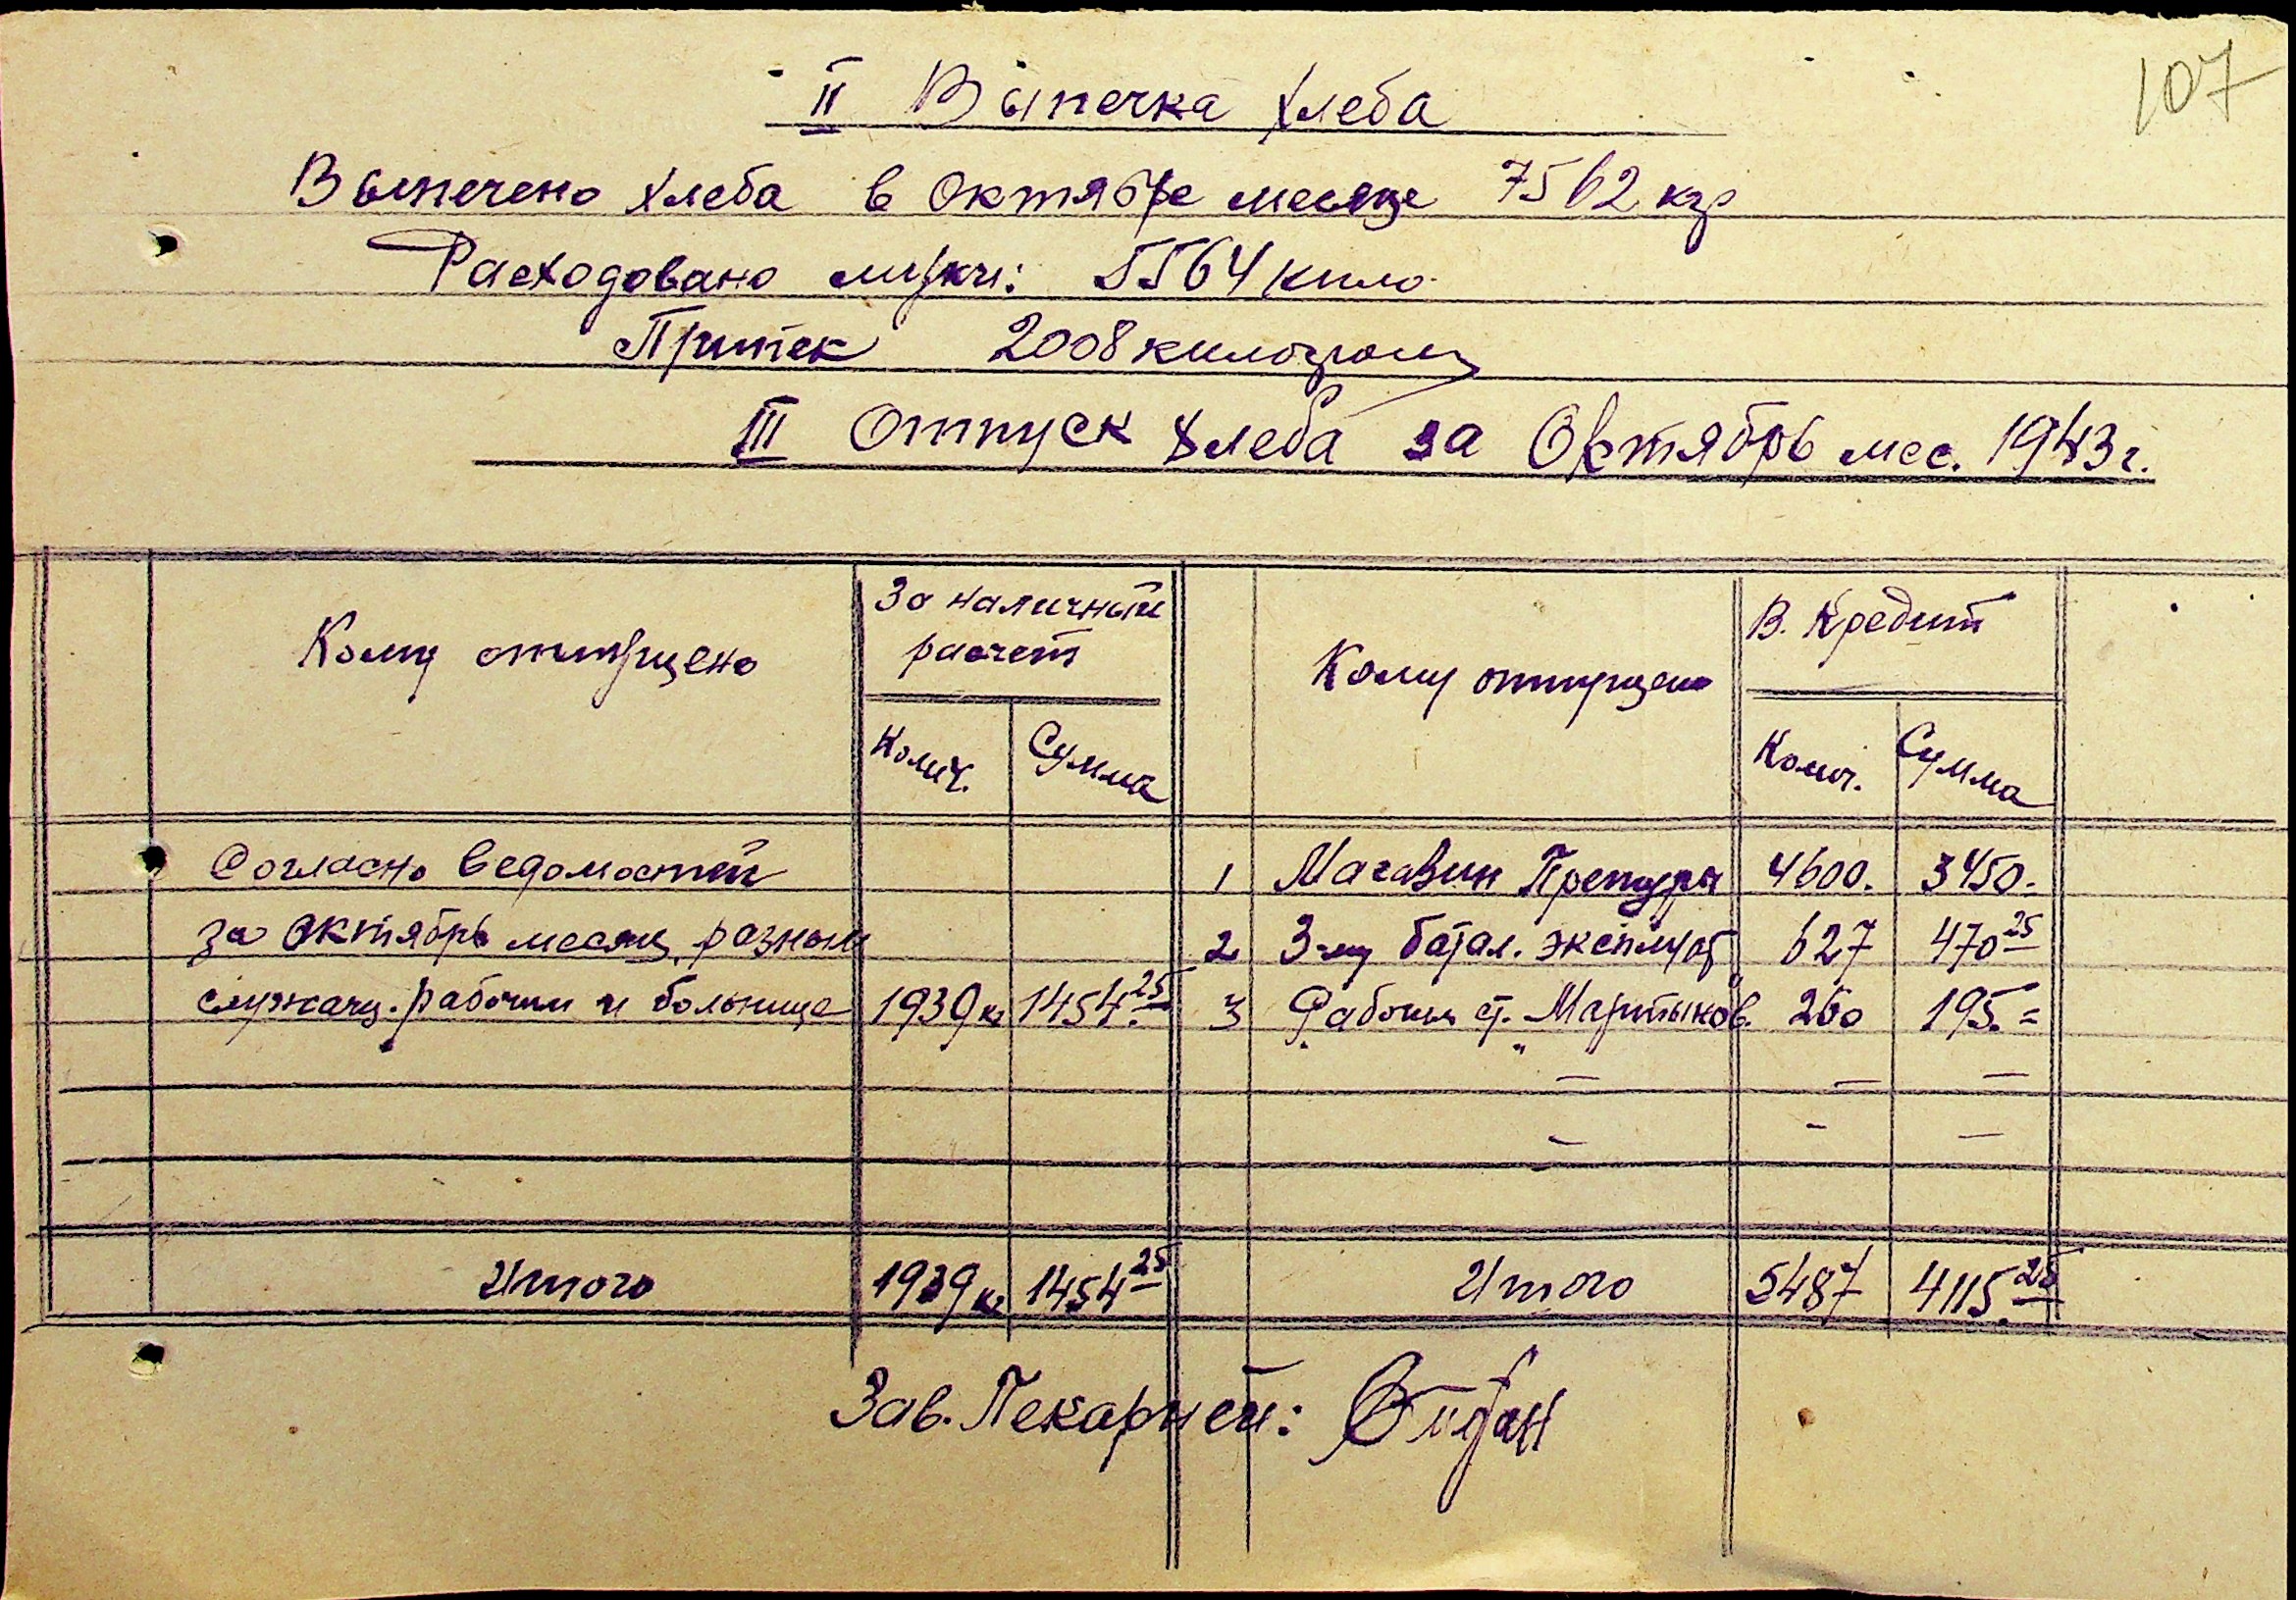 107
II Выпечка хлеба
Выпечено хлеба в октябре месяце 7562 кгр
Расходовано муки: 5564 кило
Припек 2008 килограм
III Отпуск хлеба за Октябрь мес. 1943 г.
Кому отпущено
За наличный
расчет
Колич.
Сумма
Кому отпущено
В. Кредит
Колич.
Сумма
Согласно ведомостей
за октябрь месяц, разным
служащ. рабочим и больнице 1939 кг 1454.25
1 Магазин Претуры 4600. 3450.-
2 3-му батал. эксплуат 627 470 25
3 Рабочим ст. Мартынов. 260 195.=
Итого 1939 кг 1454 25 Итого 5487 4115.25
Зав. Пекарней: